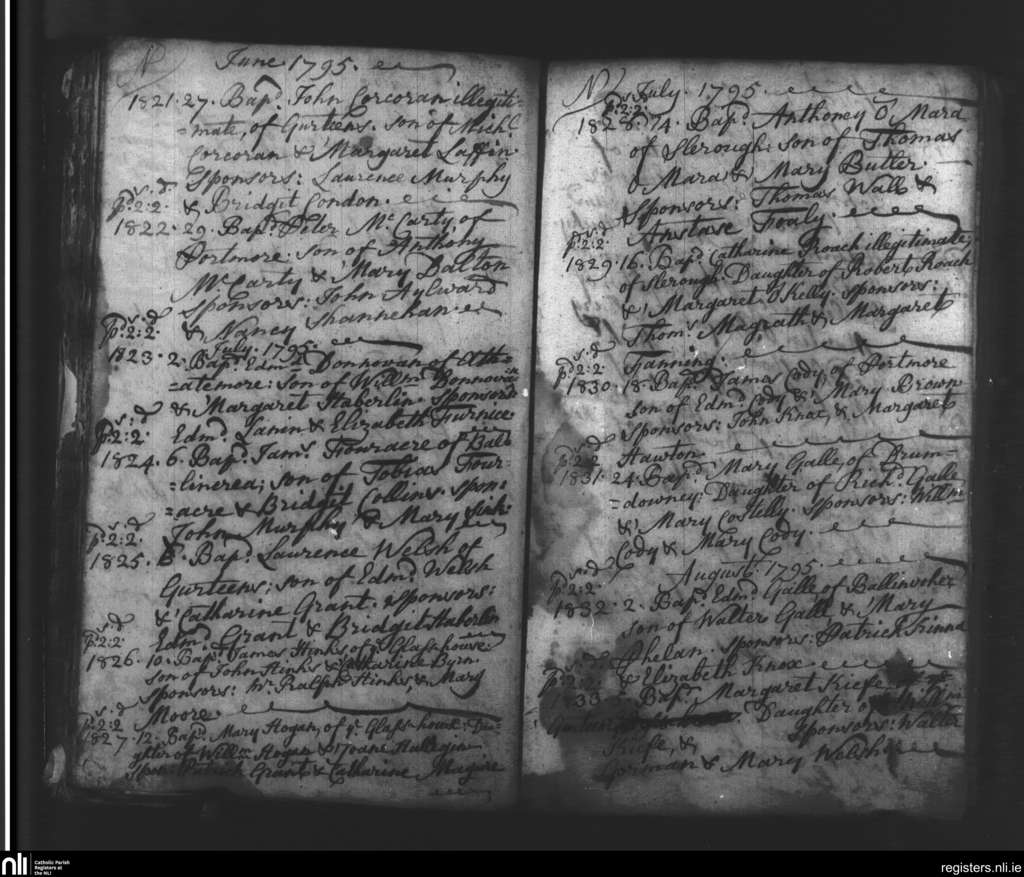 N
June 1795.
1821. 27. Bapd. John Corcoran illegiti-
=mate, of Gurteens. son of Michl.
Corcoran & Margaret Laffin.
Sponsors: Laurence Murphy
s. d.
pd. 2: 2. & Bridgit Condon.
1822. 29. Bapd. Peter Mc. Carty, of
Portmore: son of Anthony
Mc. Carty & Mary Dalton
sponsors: John Aylward
s. d
pd: 2: 2. & Nancy Shannehan.
July. 1795.
1823. 2. Bapd. Edmd. Donnovan of
=atemore: son of Willm. Donnovan
& Margaret Haberlin. Sponsors
s: d
pd: 2: 2. Edmd. & Elizabeth Furnice
1824. 6. Bapd. Jams. Fouracre of
=linerea; son of Tobias Four-
=acre & Bridgit Collins. spon:
s. d
pd: 2: 2. John Murphy & Mary
1825. Bapd. Laurence Welsh of
Gurteens; son of Edmd. Welsh
& Catharine Grant. sponsors:
s d
pd: 2: 2 Edmd. Grant & Bridgit Haberlin
1826. 10. Bapd. James Hinks of ye. Glass house:
son of John Hinks & Catharine Byrn
sponsors: Mr. Ralph Hinks, & Mary
s. d
pd: 2: 2 Moore.
1827. 12. Bapd. Mary Hogan, of ye. Glass-house: Dau-
ghter of Willm. Hogan & Joane
Spon: Patrick Grant & Catharine Magure
N
July. 1795.
s
pd: 2: 2.
1828. 14. Bapd. Anthoney O Mara
of Slerough: son of Thomas
O Mara & Mary Butler.
Sponsors: Thomas Wall &
s. d
pd: 2: 2. Anstase Foaly.
1829. 16. Bapd. Catharine Roach illegitimate;
of Slerough: Daughter of Robert Roach
& Margaret O Kelly. sponsors:
Thoms. Magrath & Margaret
s. d
pd: 2: 2. Fanning.
1830. 18. Bapd. James Cody of Portmore
son of Edmd. Cody & Mary Brown
Sponsors: John Knox, & Margaret
s d
pd: 2: 2 Hawton
1831. 24. Bapd. Mary Galle, of Drum-
=downey: Daughter of Richd. Galle
& Mary Costelly. sponsors: Willm
Cody & Mary Cody.
s: d
pd: 2: 2. August. 1795.
1832. 2. Bapd. Edmd. Galle of Ballinvcher
son of Walter Galle & Mary
Phelan. sponsors: Patrick
s. d
pd: 2: 2 & Elizabeth Knox
1833. 5. Bapd. Margaret Kiefe
Daughter of Willm
Kiefe, & Sponsors: Walter
Gorman & Mary Welsh
nli
Catholic Parish
Registers at
the NLI
registers.nli.ie